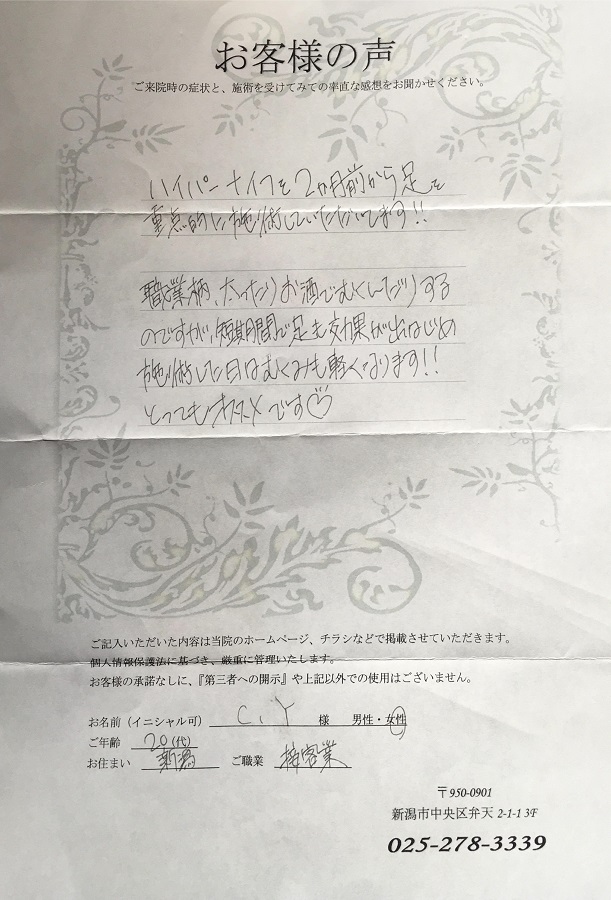 お客様の声
ご来院時の症状と、施術を受けてみての率直な感想をお聞かせください。
ハイパーナイフを2か月前から足を
重点的に施術していただいてます!!
職業柄、太ったりお酒でむくんだりする
のですが、短期間で足も効果が出はじめ
施術した日はむくみも軽くなります!!
とってもオススメです♡
ご記入いただいた内容は当院のホームページ、チラシなどで掲載させていただきます。
個人情報保護法に基づき、厳重に管理いたします。
お客様の承諾なしに、『第三者への開示』や上記以外での使用はございません。
お名前（イニシャル可） C.Y 様 男性・女性
ご年齢 20(代)
お住まい 新潟 ご職業 接客業
〒950-0901
新潟市中央区弁天 2-1-1 3F
025-278-3339